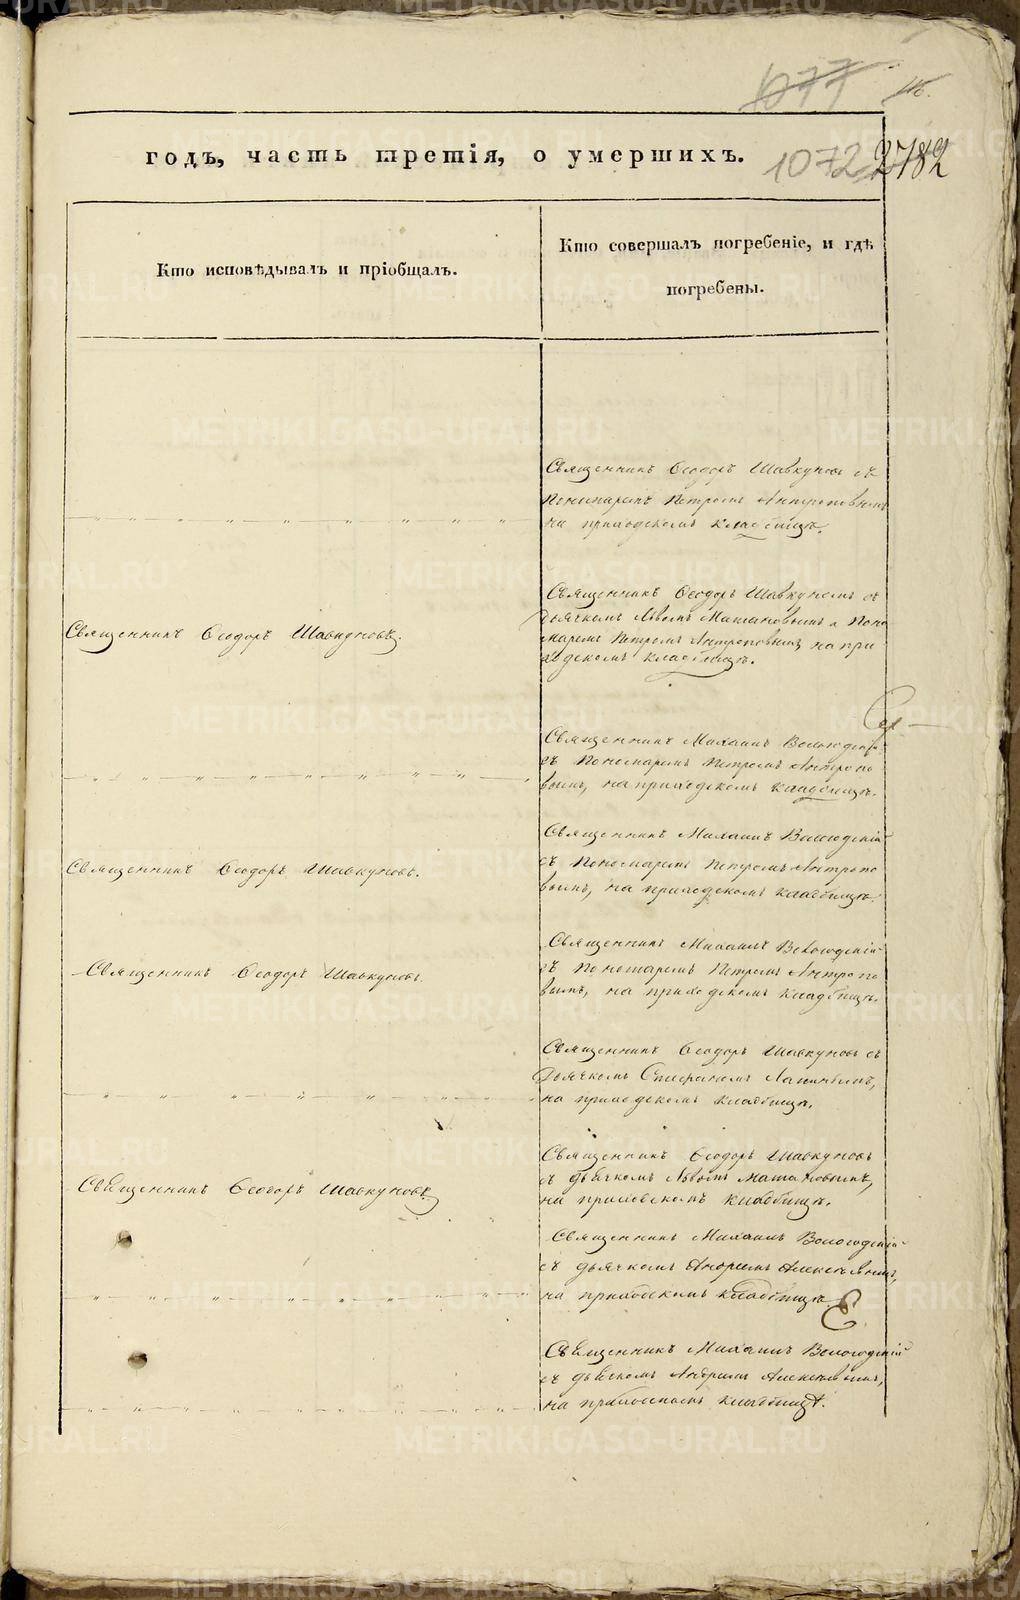 1077
116.
годъ, часть третія, о умершихъ.
1072
2782
Кто исповѣдывалъ и пріобщалъ.
Кто совершалъ погребеніе, и гдѣ
погребены.
Священникъ Ѳеодоръ Шавкуновъ съ
Пономаремъ Петромъ Антроповымъ
на приходскомъ кладбищѣ.
Священникъ Ѳеодоръ Шавкуновъ.
Священникъ Ѳеодоръ Шавкуновъ съ
Дьячкомъ Львомъ Матановымъ и Поно
маремъ Петромъ Антроповымъ на при
ходскомъ кладбищѣ.
Священникъ Михаилъ Вологодскій
съ Пономаремъ Петромъ Антропо
вымъ, на приходскомъ кладбищѣ.
Священникъ Ѳеодоръ Шавкуновъ.
Священникъ Михаилъ Вологодскій
съ Пономаремъ Петромъ Антропо
вымъ, на приходскомъ кладбищѣ.
Священникъ Ѳеодоръ Шавкуновъ.
Священникъ Михаилъ Вологодскій
съ Пономаремъ Петромъ Антропо
вымъ, на приходскомъ кладбищѣ.
Священникъ Ѳеодоръ Шавкуновъ съ
Дьячкомъ Стефаномъ Лапинымъ,
на приходскомъ кладбищѣ.
Священникъ Ѳеодоръ Шавкуновъ.
Священникъ Ѳеодоръ Шавкуновъ
съ дьячкомъ Львомъ Матановымъ,
на приходскомъ кладбищѣ.
Священникъ Михаилъ Вологодскій
съ дьячкомъ Андреемъ Алексѣевымъ,
на приходскомъ кладбищѣ.
Священникъ Михаилъ Вологодскій
съ дьячкомъ Андреемъ Алексѣевымъ,
на приходскомъ кладбищѣ.
METRIKI.GASO-URAL.RU